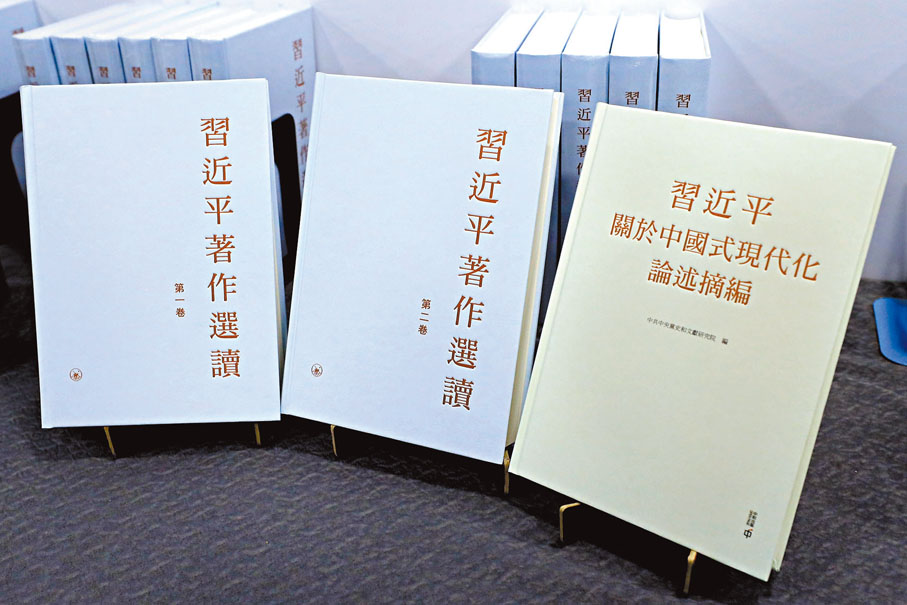 習近平著作選讀
第一卷
習近平著作選讀
第二卷
習近平
關於中國式現代化
論述摘編
中共中央黨史和文獻研究院 編
習近
習近
習近
習近
習近
習近
習近平著作
習近平著作
習近
習